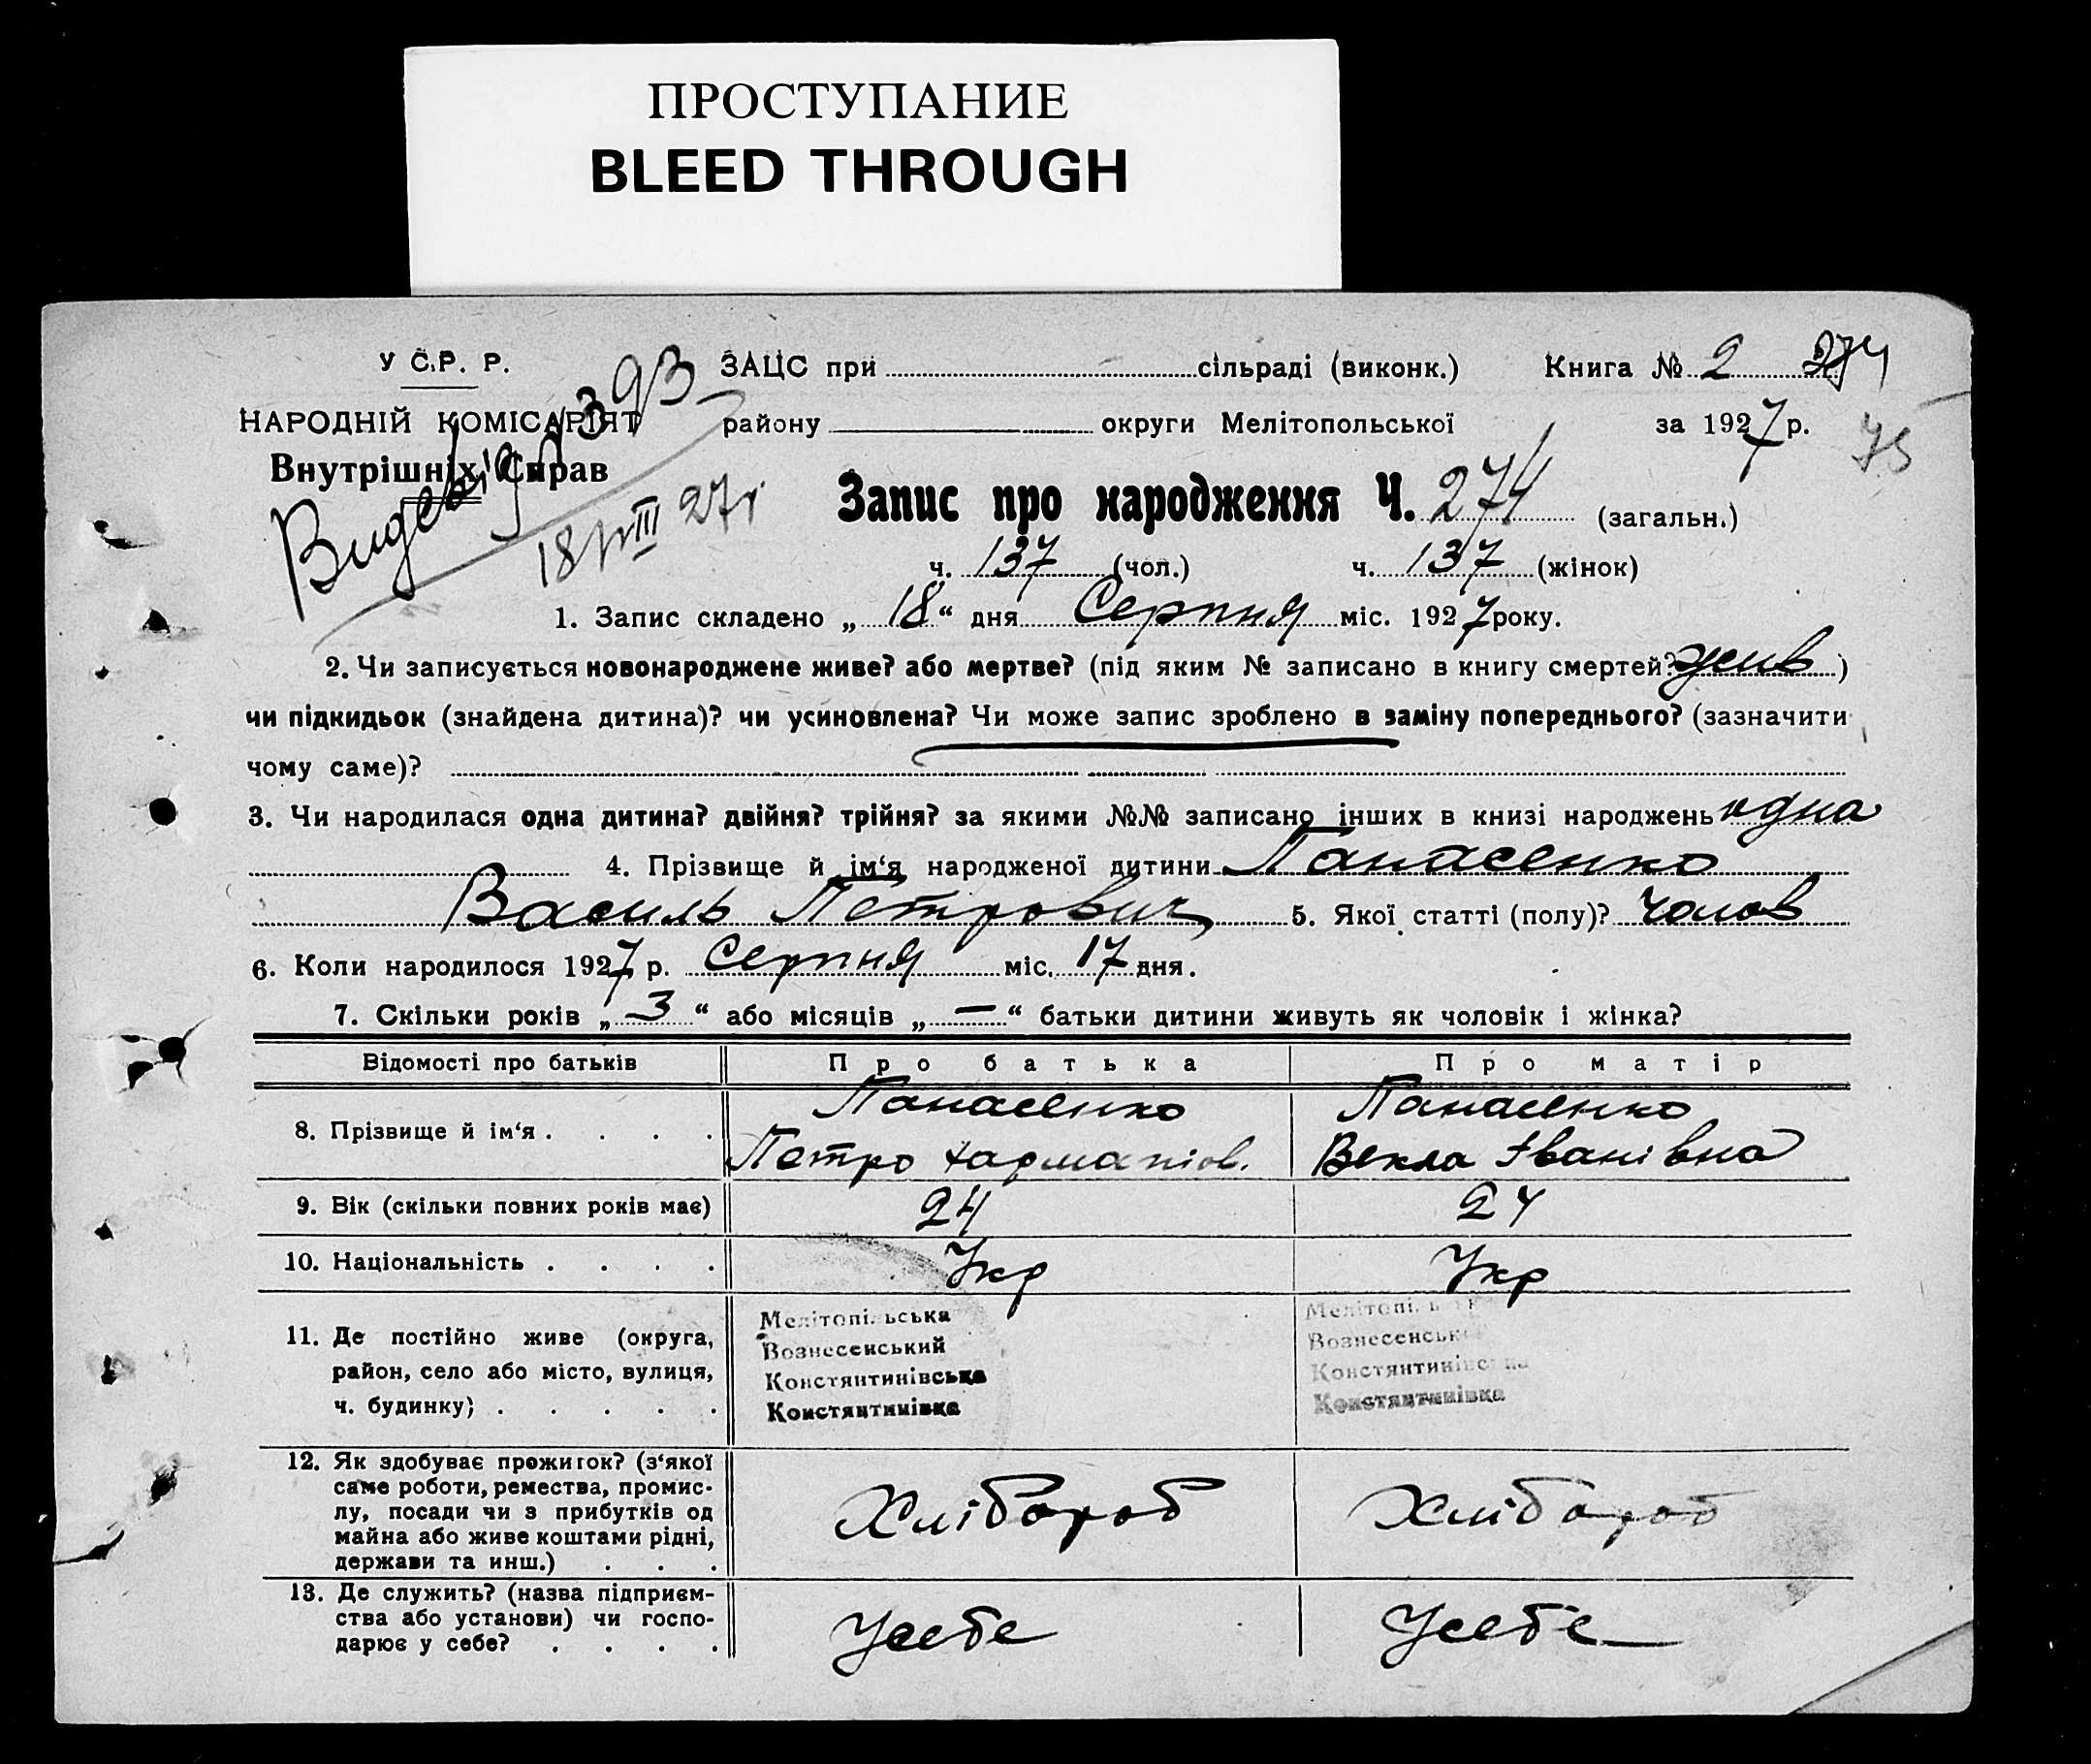 ПРОСТУПАНИЕ
BLEED THROUGH
У С.Р. Р.
НАРОДНІЙ КОМІСАРІЯТ
Внутрішніх Справ
393
18/VIII 27 г
ЗАЦС при сільраді (виконк.) Книга № 2 274
району округи Мелітопольської за 1927 р. 75
Запис про народження Ч. 274 (загальн.)
ч. 137 (чол.) ч. 137 (жінок)
1. Запис складено „ 18 “ дня Серпня міс. 1927 року.
2. Чи записується новонароджене живе? або мертве? (під яким № записано в книгу смертей? жив )
чи підкидьок (знайдена дитина)? чи усиновлена? Чи може запис зроблено в заміну попереднього? (зазначити
чому саме)?
3. Чи народилася одна дитина? двійня? трійня? за якими №№ записано інших в книзі народжень одна
4. Прізвище й ім‘я народженої дитини Панасенко
Василь Петрович 5. Якої статті (полу)? Чолов
6. Коли народилося 1927 р. Серпня міс. 17 дня.
7. Скільки років „ 3 “ або місяців „ — “ батьки дитини живуть як чоловік і жінка?
Відомості про батьків Про батька Про матір
8. Прізвище й ім‘я . . . . Панасенко Панасенко
Петро Векла Іванівна
9. Вік (скільки повних років має) 24 24
10. Національність . . . . Укр Укр
11. Де постійно живе (округа,
район, село або місто, вулиця,
ч. будинку) . . . . .
Мелітопільська
Вознесенський
Констянтинівська
Констянтинівка
Мелітопільська
Вознесенський
Констянтинівська
Констянтинівка
12. Як здобуває прожиток? (з‘якої
саме роботи, ремества, промис-
лу, посади чи з прибутків од
майна або живе коштами рідні,
держави та инш.) . . .
Хлібороб Хлібороб
13. Де служить? (назва підприєм-
ства або установи) чи госпо-
дарює у себе? . . . .
Усебе Усебе